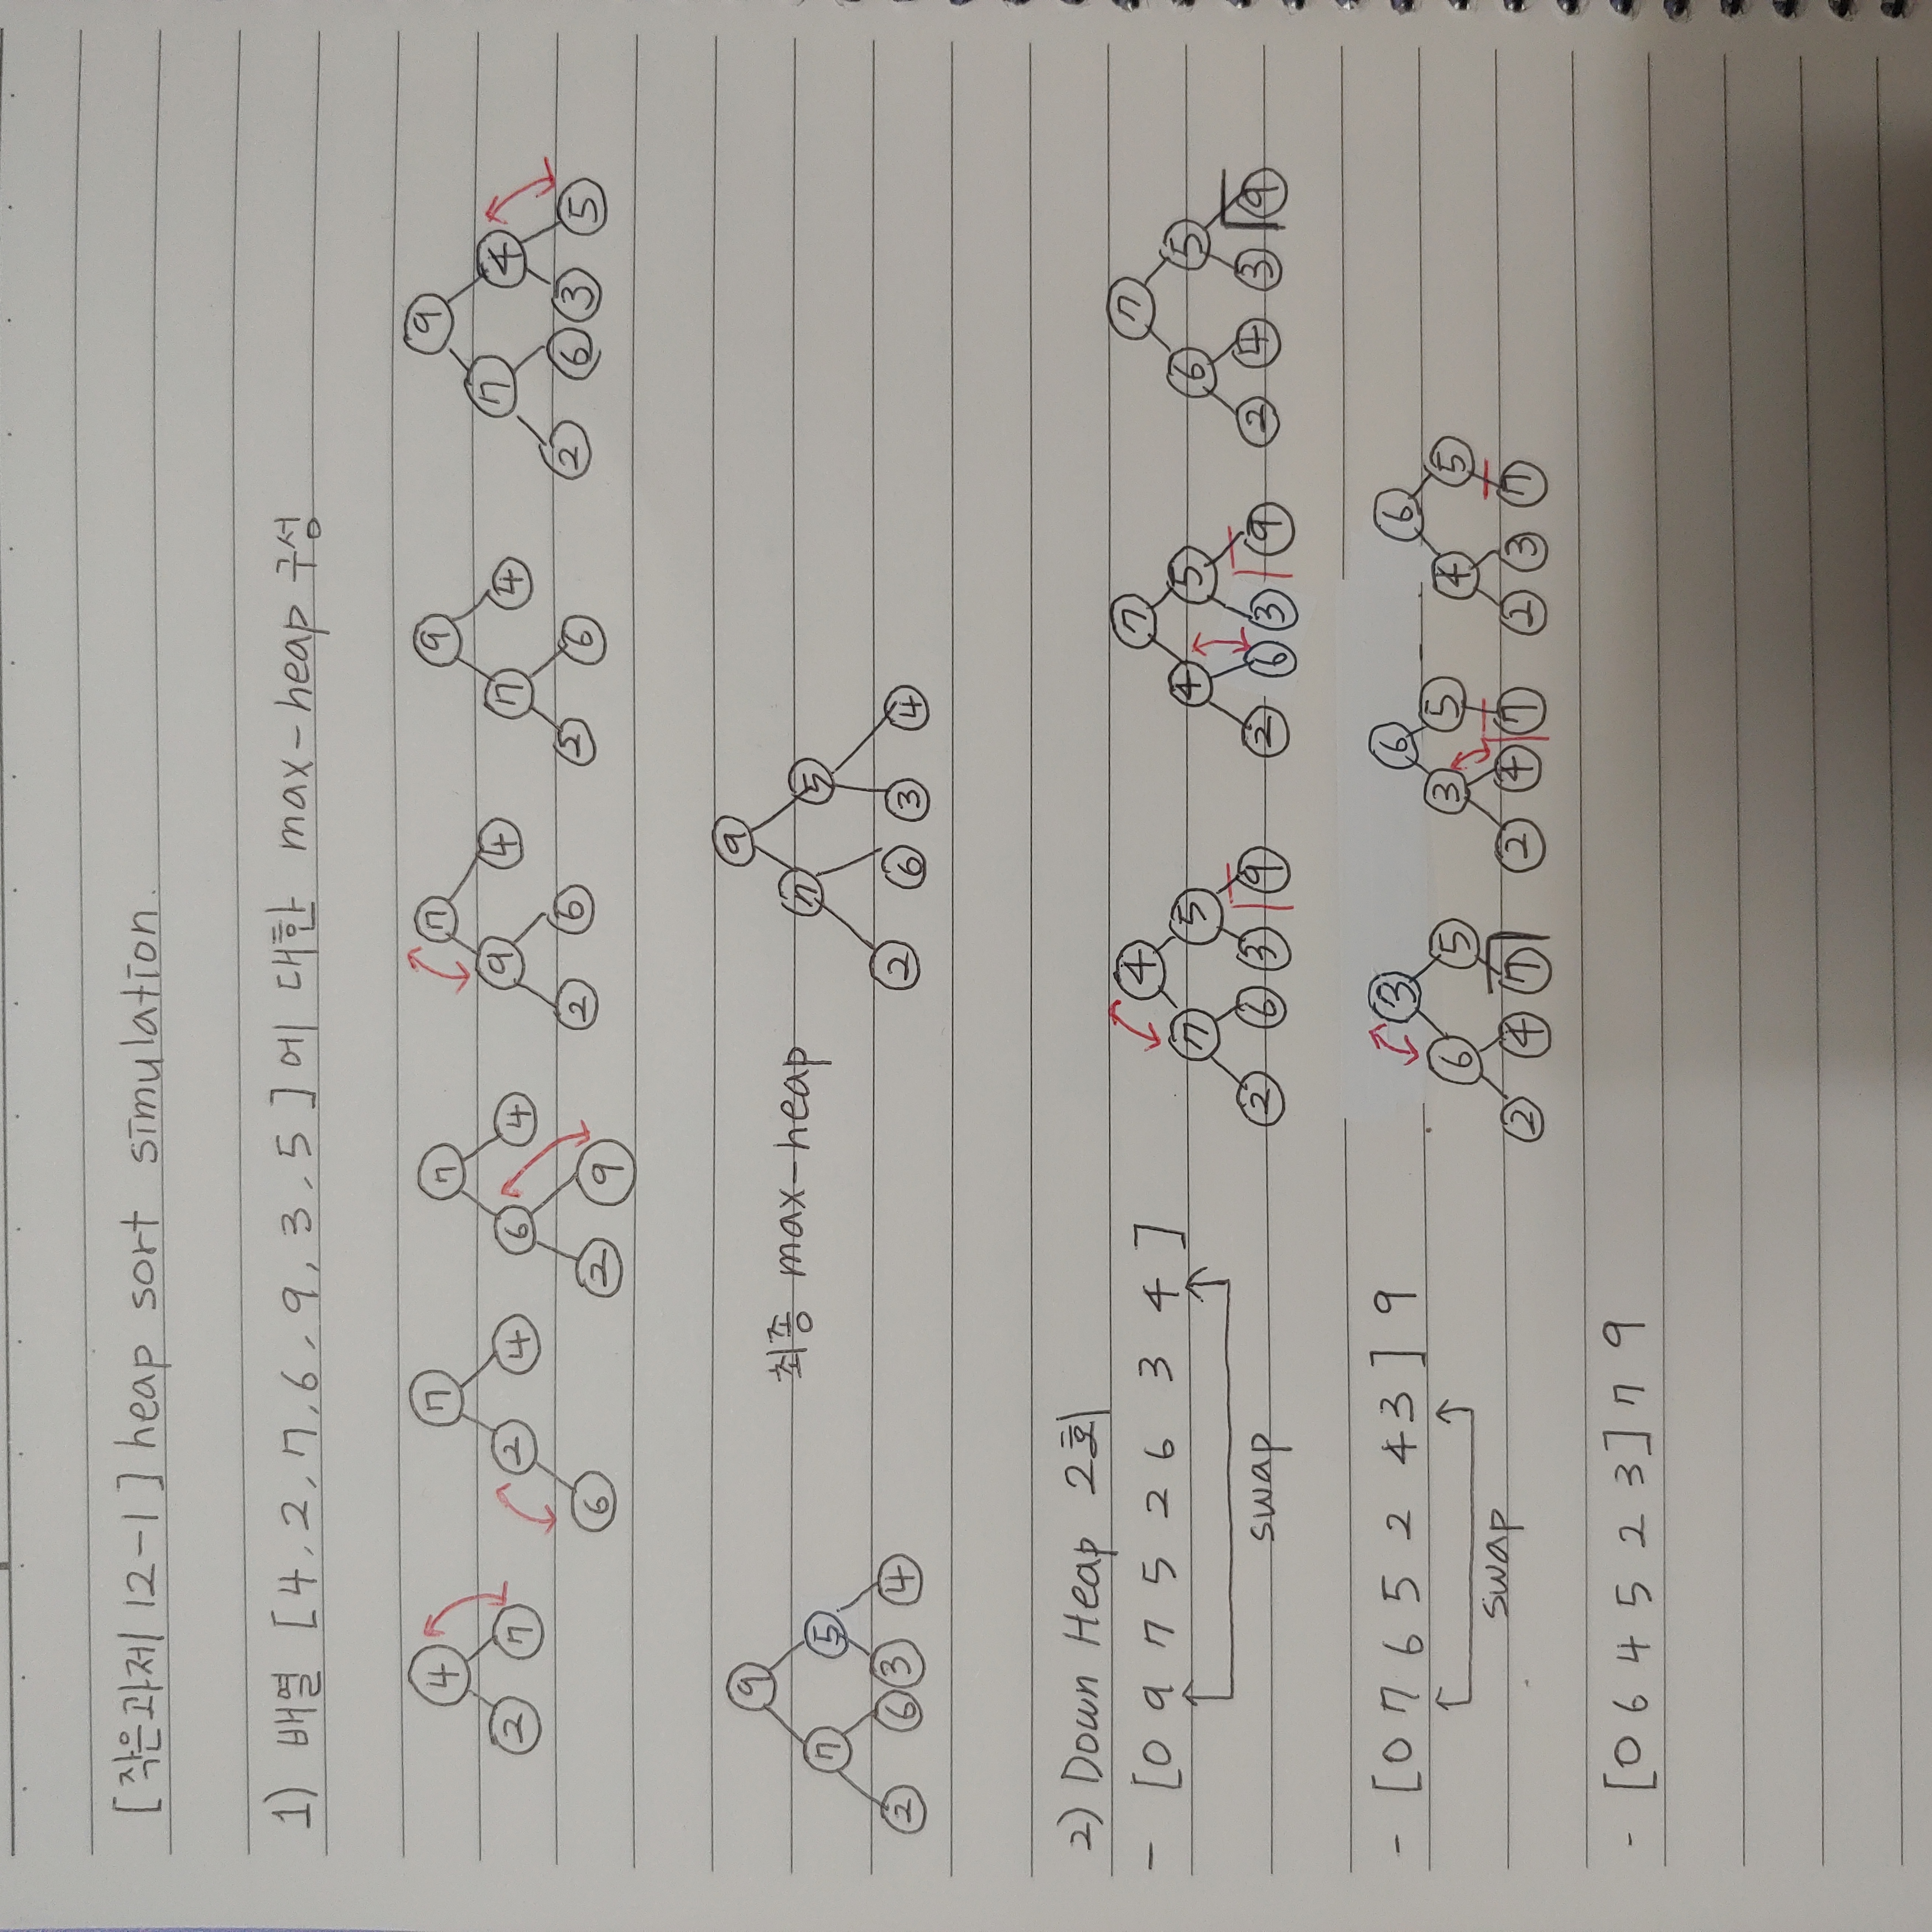 [작은과제 12-1] heap sort simulation.
1) 배열 [4, 2, 7, 6, 9, 3, 5]에 대한 max-heap 구성
4 7 7 7 9 9
2 7 2 4 6 4 9 4 7 4 7 4
6 2 9 2 6 2 6 2 6 3 5
9
7 5
2 6 3 4
최종 max-heap
9
7 5
2 6 3 4
2) Down Heap 2회
- [0 9 7 5 2 6 3 4]
swap
4 7 7
7 5 4 5 6 5
2 6 3 9 2 6 3 9 2 4 3 9
- [0 7 6 5 2 4 3] 9
swap
3 6 6
6 5 3 5 4 5
2 4 7 2 4 7 2 3 7
- [0 6 4 5 2 3] 7 9